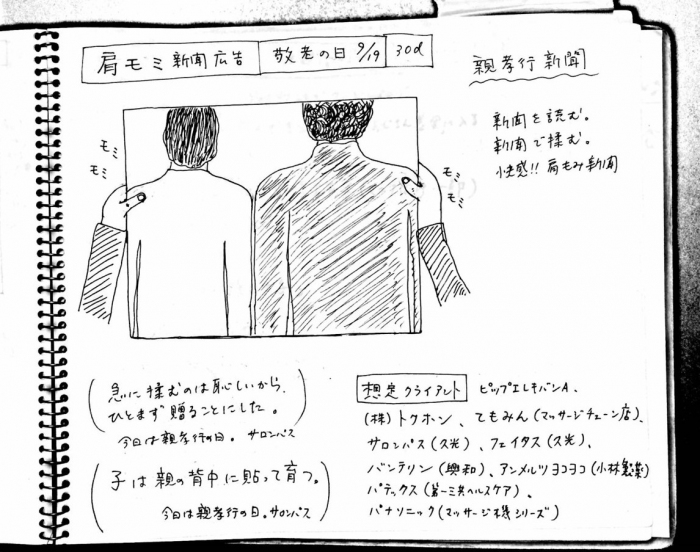 肩モミ新聞広告
敬老の日 9/19
30d
親孝行新聞
新聞を読む。
新聞で揉む。
快感!! 肩もみ新聞
モミ
モミ
モミ
モミ
急に揉むのは恥しいから、
ひとまず贈ることにした。
今日は親孝行の日。サロンパス
子は親の背中に貼って育つ。
今日は親孝行の日。サロンパス
想定クライアント ピップエレキバンA、
(株)トクホン、てもみん(マッサージチェーン店)、
サロンパス(久光)、フェイタス(久光)、
バンテリン(興和)、アンメルツヨコヨコ(小林製薬)
パテックス(第一三共ヘルスケア)、
パナソニック(マッサージ機シリーズ)